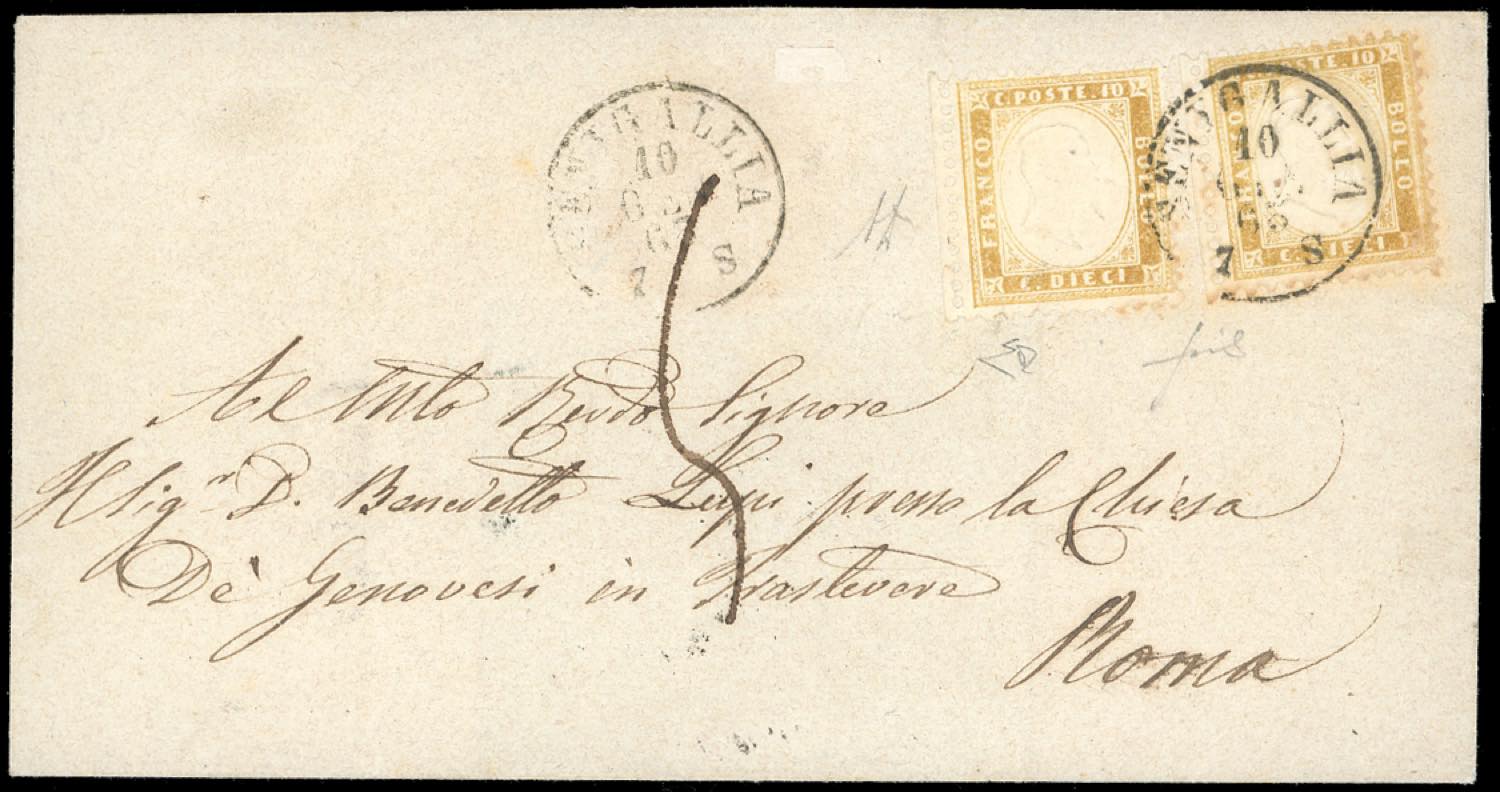 SENIGALLIA
10
7 S
C. POSTE. 10
FRANCO
BOLLO
C. DIECI
C. POSTE. 10
FRANCO
BOLLO
C. DIECI
SENIGALLIA
10
7 S
5
Al Signore
Il Sigr. D. Benedetto Lupi presso la Chiesa
De' Genovesi in Trastevere
Roma